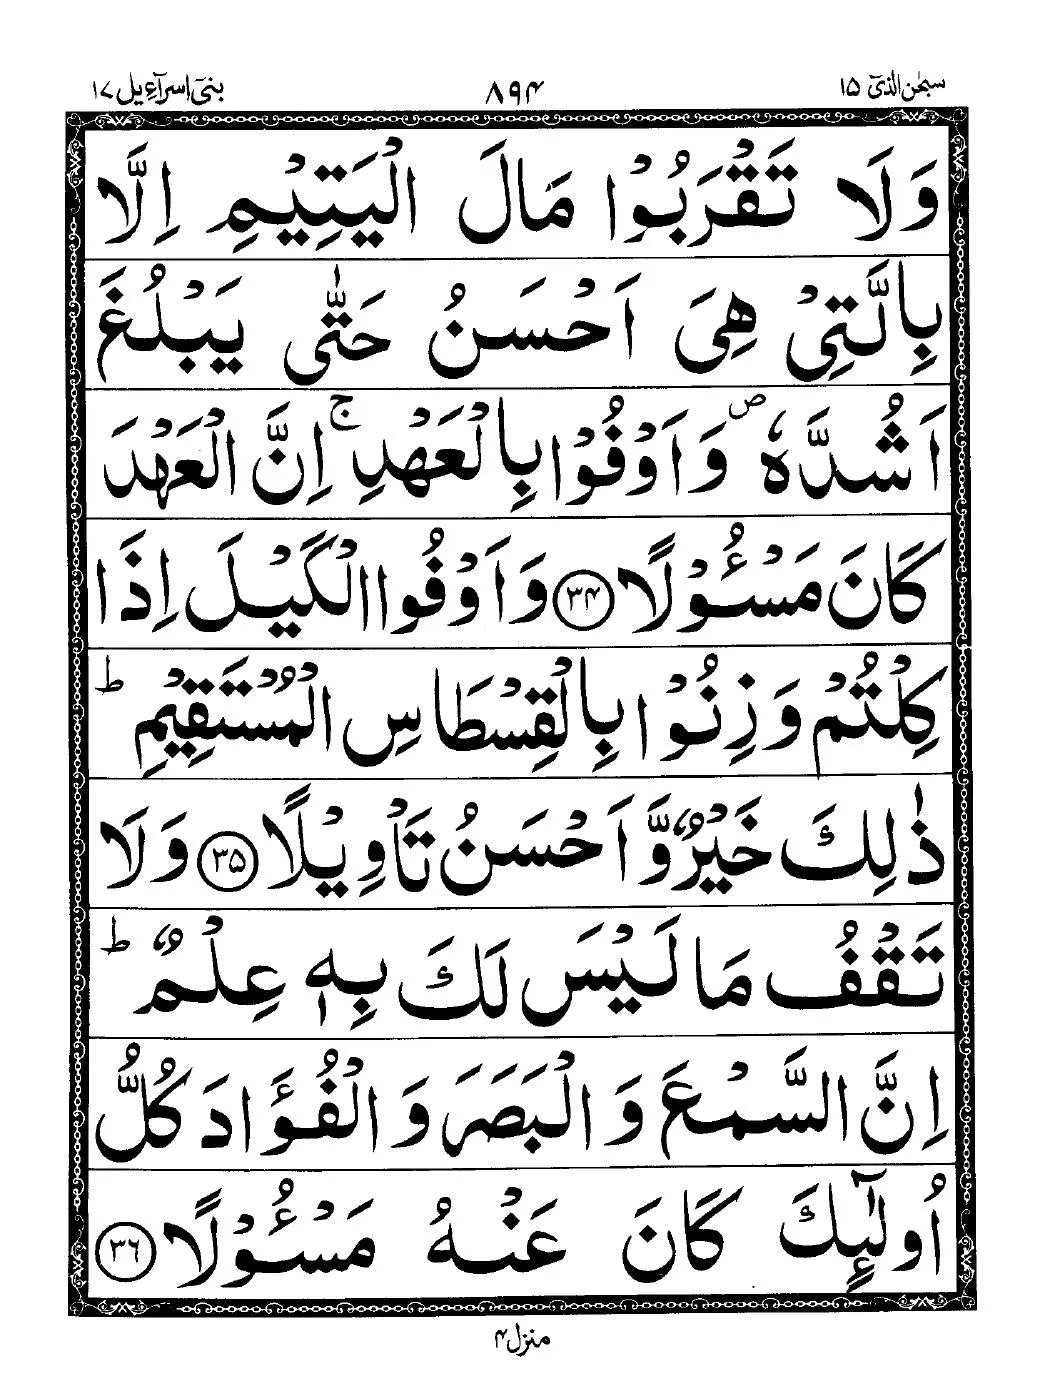 سبحٰن الذیٓ ١٥
٨٩۴
بنیٓ اسرآءیل ١٧
وَلَا تَقْرَبُوْا مَالَ الْيَتِيْمِ اِلَّا
بِالَّتِيْ هِيَ اَحْسَنُ حَتّٰى يَبْلُغَ
اَشُدَّهٗ ۪ وَاَوْفُوْا بِالْعَهْدِ ۚ اِنَّ الْعَهْدَ
كَانَ مَسْـُٔوْلًا ۝٣۴ وَاَوْفُوا الْكَيْلَ اِذَا
كِلْتُمْ وَزِنُوْا بِالْقِسْطَاسِ الْمُسْتَقِيْمِ ؕ
ذٰلِكَ خَيْرٌ وَّاَحْسَنُ تَاْوِيْلًا ۝٣۵ وَلَا
تَقْفُ مَا لَيْسَ لَكَ بِهٖ عِلْمٌ ؕ
اِنَّ السَّمْعَ وَالْبَصَرَ وَالْفُؤَادَ كُلُّ
اُولٰٓئِكَ كَانَ عَنْهُ مَسْـُٔوْلًا ۝٣٦
منزل ۴